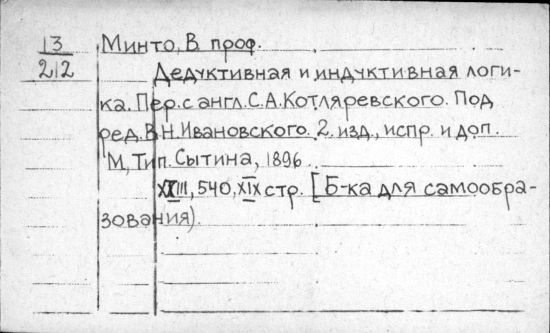 13 Минто, В. проф.
212 Дедуктивная и индуктивная логи-
ка. Пер. с англ. С.А. Котляревского. Под
ред. В.Н. Ивановского. 2. изд., испр. и доп.
М, Тип. Сытина, 1896
XXIII, 540, XIX стр. [Б-ка для самообра-
зования).